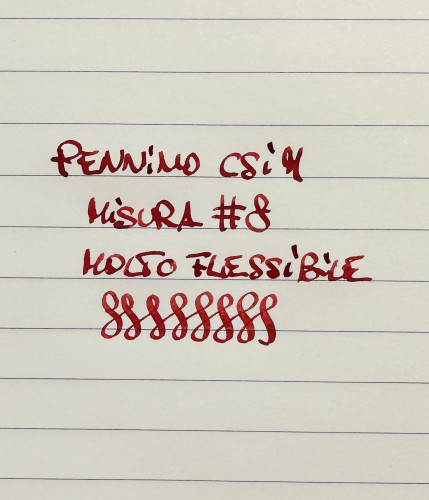 PENNiNO CSi M
MiSURA #8
MOLTO FLESSiBiLE